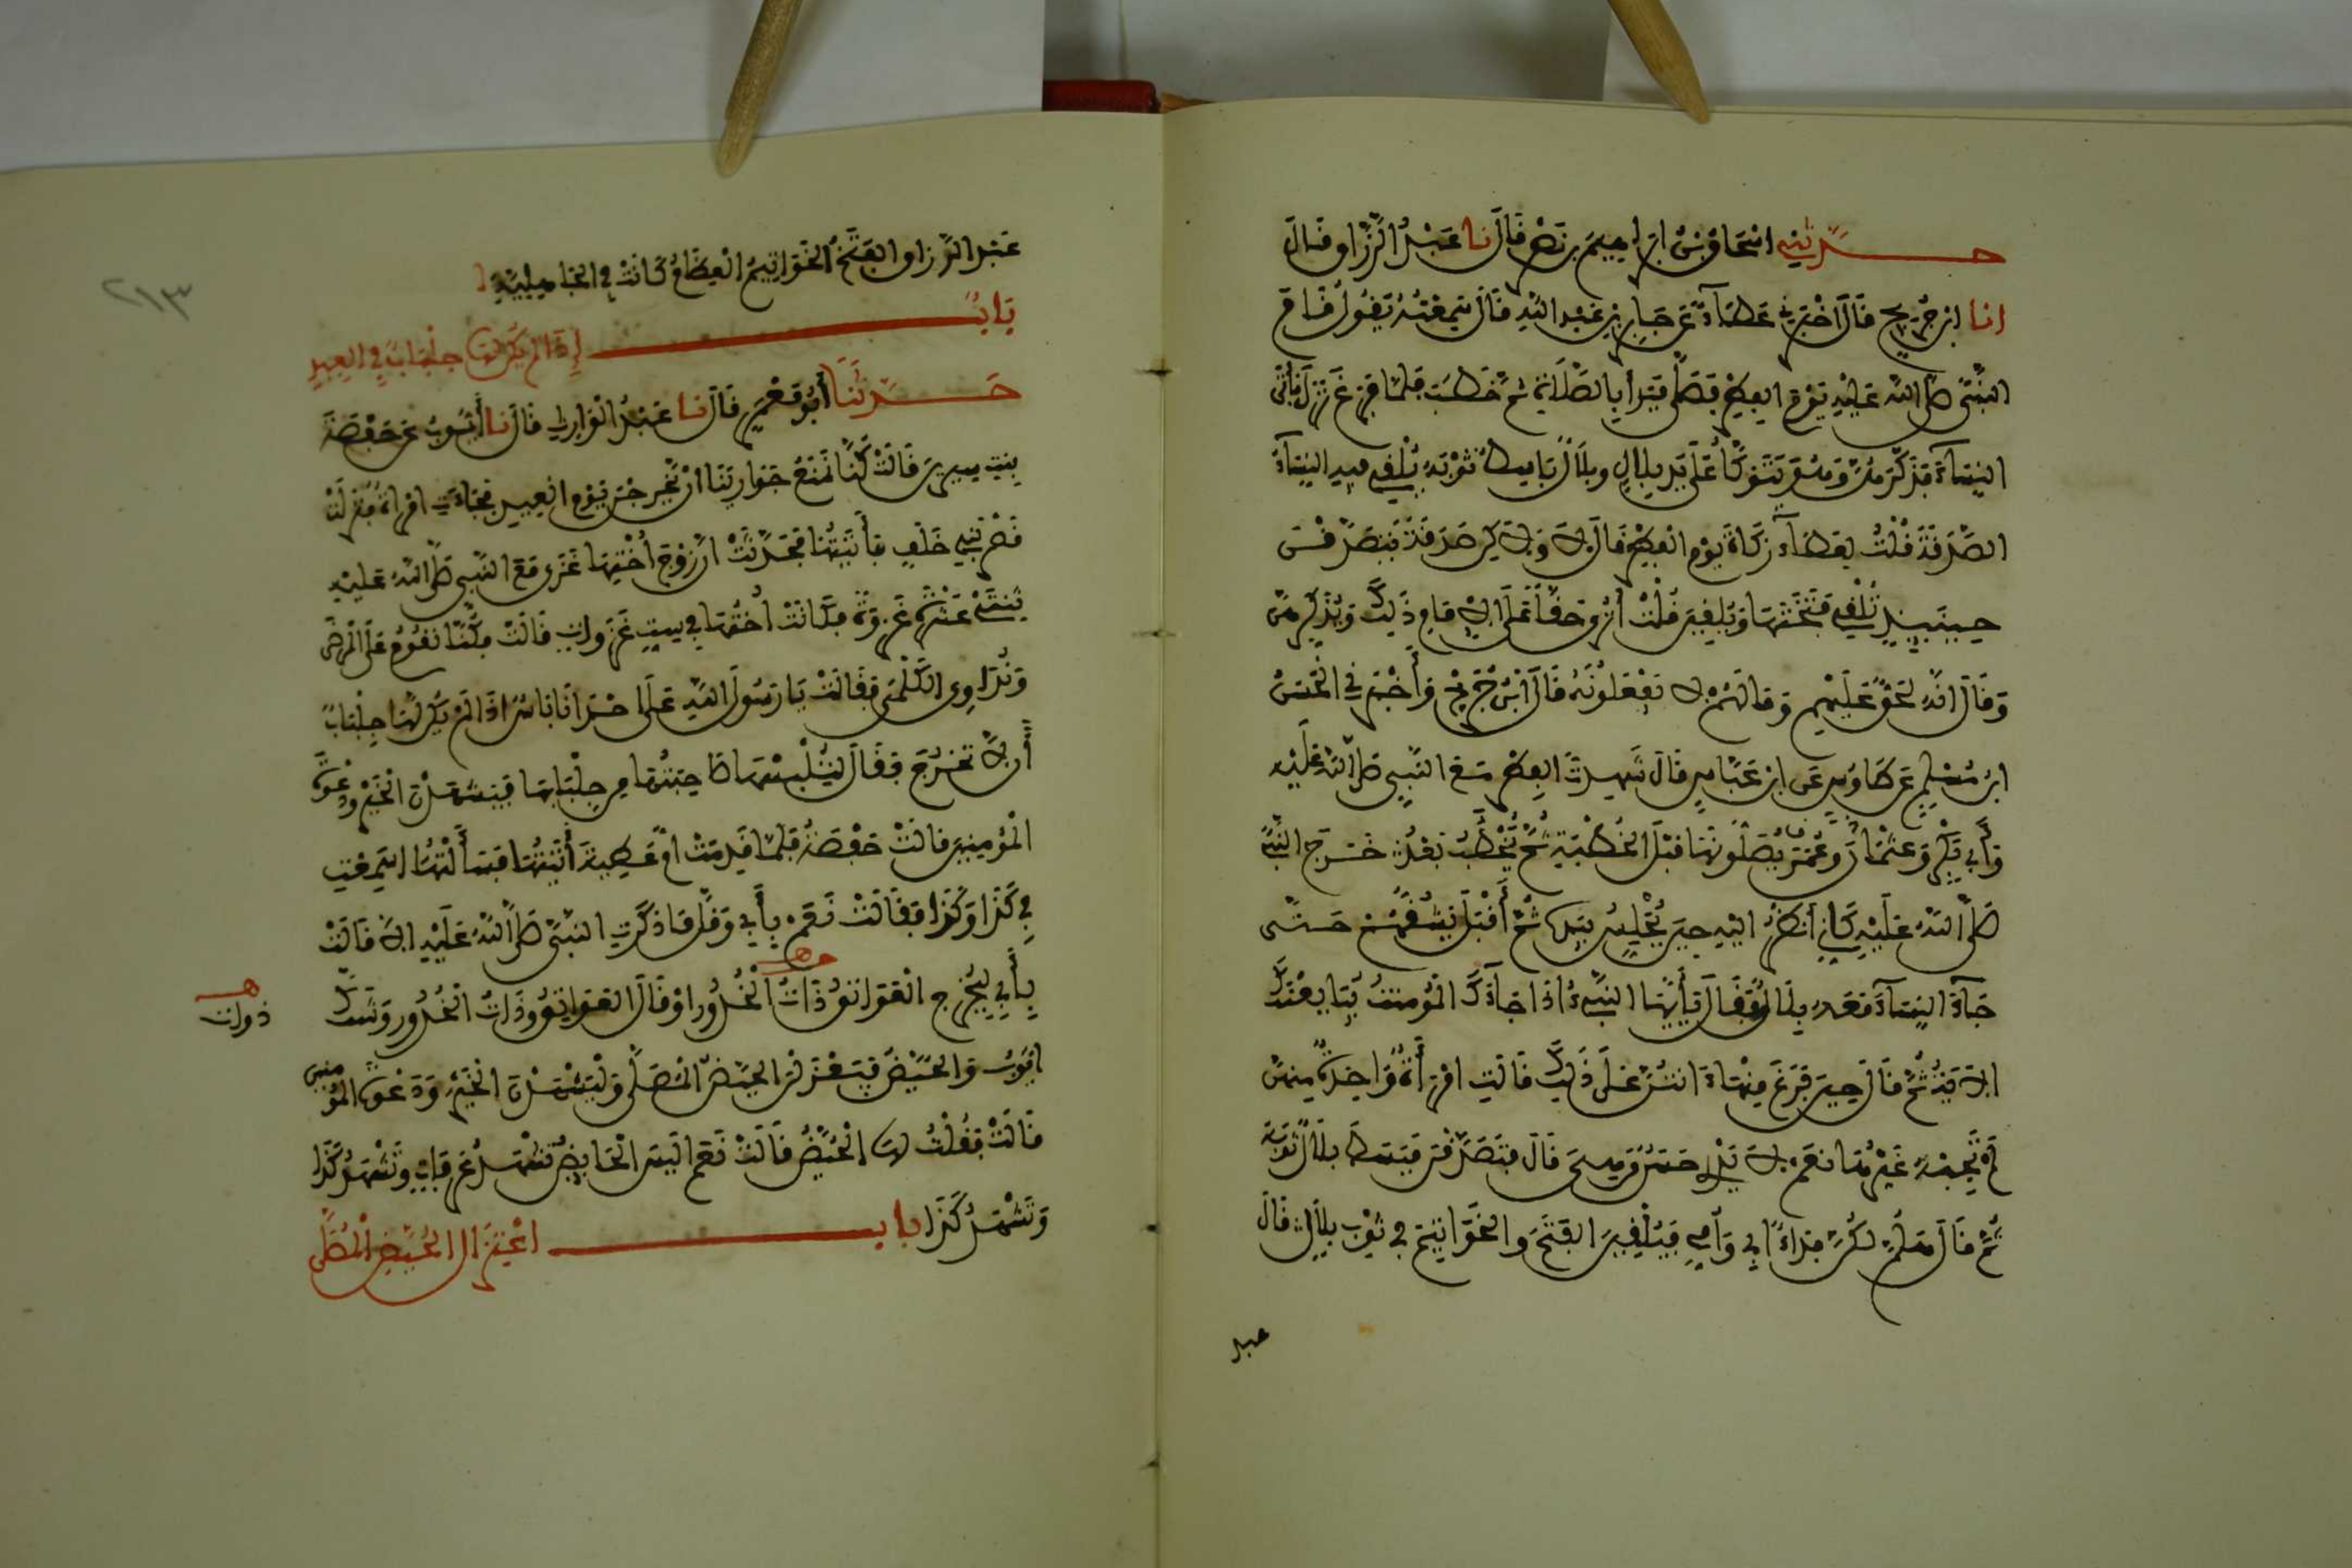 حدثني اسحاق بن ابراهيم بن نصر قال نا عبد الرزاق قال
انا ابن جريج قال اخبرني عطاء عن جابر بن عبد الله قال سمعته يقول قام
النبي صلى الله عليه يوم الفطر فصلى فبدأ بالصلاة ثم خطب فلما فرغ نزل فأتى
النساء فذكرهن وهو يتوكأ على يد بلال وبلال باسط ثوبه يلقي فيه النساء
الصدقة قلت لعطاء زكاة يوم الفطر قال لا ولاكن صدقة يتصدقن
حينئذ تلقي فتختها ويلقين قلت أترى حقا على الإمام ذلك ويذكرهن
وقال انه لحق عليهم وما لهم لا يفعلونه قال ابن جريج وأخبرني الحسن
ابن مسلم عن طاوس عن ابن عباس قال شهدت الفطر مع النبي صلى الله عليه
وأبي بكر وعمر وعثمان يصلونها قبل الخطبة ثم يخطب بعد خرج النبي
صلى الله عليه كأني أنظر اليه حين يجلس بيده ثم أقبل يشقهم حتى
جاء النساء معه بلال فقال يأيها النبي اذا جاءك المؤمنت يبايعنك
الاية ثم قال حين فرغ منها ءانتن على ذلك قالت امرأة واحدة منهن
لم يجبه غيرها نعم لا يدري حسن من هي قال فتصدقن فبسط بلال ثوبه
ثم قال هلم لكن فداء ابي وأمي فيلقين الفتخ والخواتيم في ثوب بلال قال
عبد
عبد الرزاق الفتخ الخواتيم العظام كانت في الجاهلية
باب إذا لم يكن لها جلباب في العيد
حدثنا أبو معمر قال نا عبد الوارث قال نا أيوب عن حفصة
بنت سيرين قالت كنا نمنع جوارينا ان يخرجن يوم العيد فجاءت امرأة فنزلت
قصر بني خلف فأتيتها فحدثت ان زوج أختها غزى مع النبي صلى الله عليه
ثنتي عشرة غزوة فكانت أختها في ست غزوات قالت فكنا نقوم على المرضى
ونداوي الكلمى فقالت يا رسول الله على احدانا باس اذا لم يكن لها جلباب
أن لا تخرج فقال لتلبسها صاحبتها من جلبابها فيشهدن الخير ودعوة
المؤمنين قالت حفصة فلما قدمت ام عطية أتيتها فسألتها اسمعت
في كذا وكذا فقالت نعم بأبي وقلما ذكرت النبي صلى الله عليه الا قالت
بأبي ليخرج العواتق ذات الخدور او قال العواتق وذات الخدور وشك
ايوب والحيض فيعتزلن الحيض المصلى وليشهدن الخير ودعوة المؤمنين
قالت فقلت لها الحيض قالت نعم اليس الحايض تشهد عرفات وتشهد كذا
وتشهد كذا باب اعتزال الحيض المصلى
ذوات
٢١٣